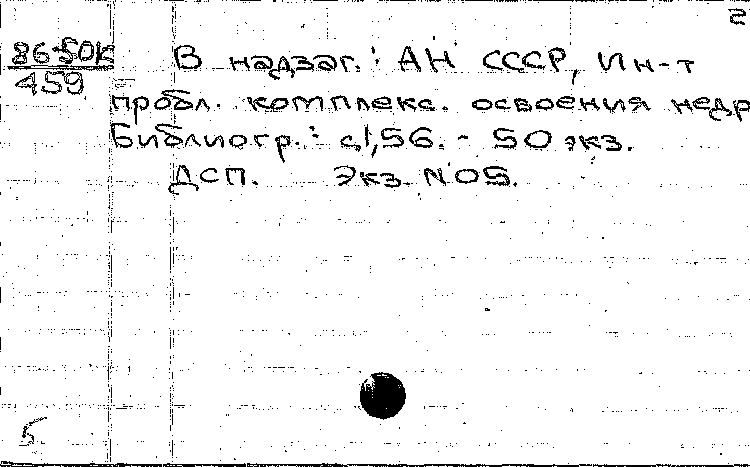 2
86-50к
459
В надзаг.: АН СССР, Ин-т
пробл. комплекс. освоения недр
Библиогр.: с. 56. - 50 экз.
ДСП. Экз. N 05.
5